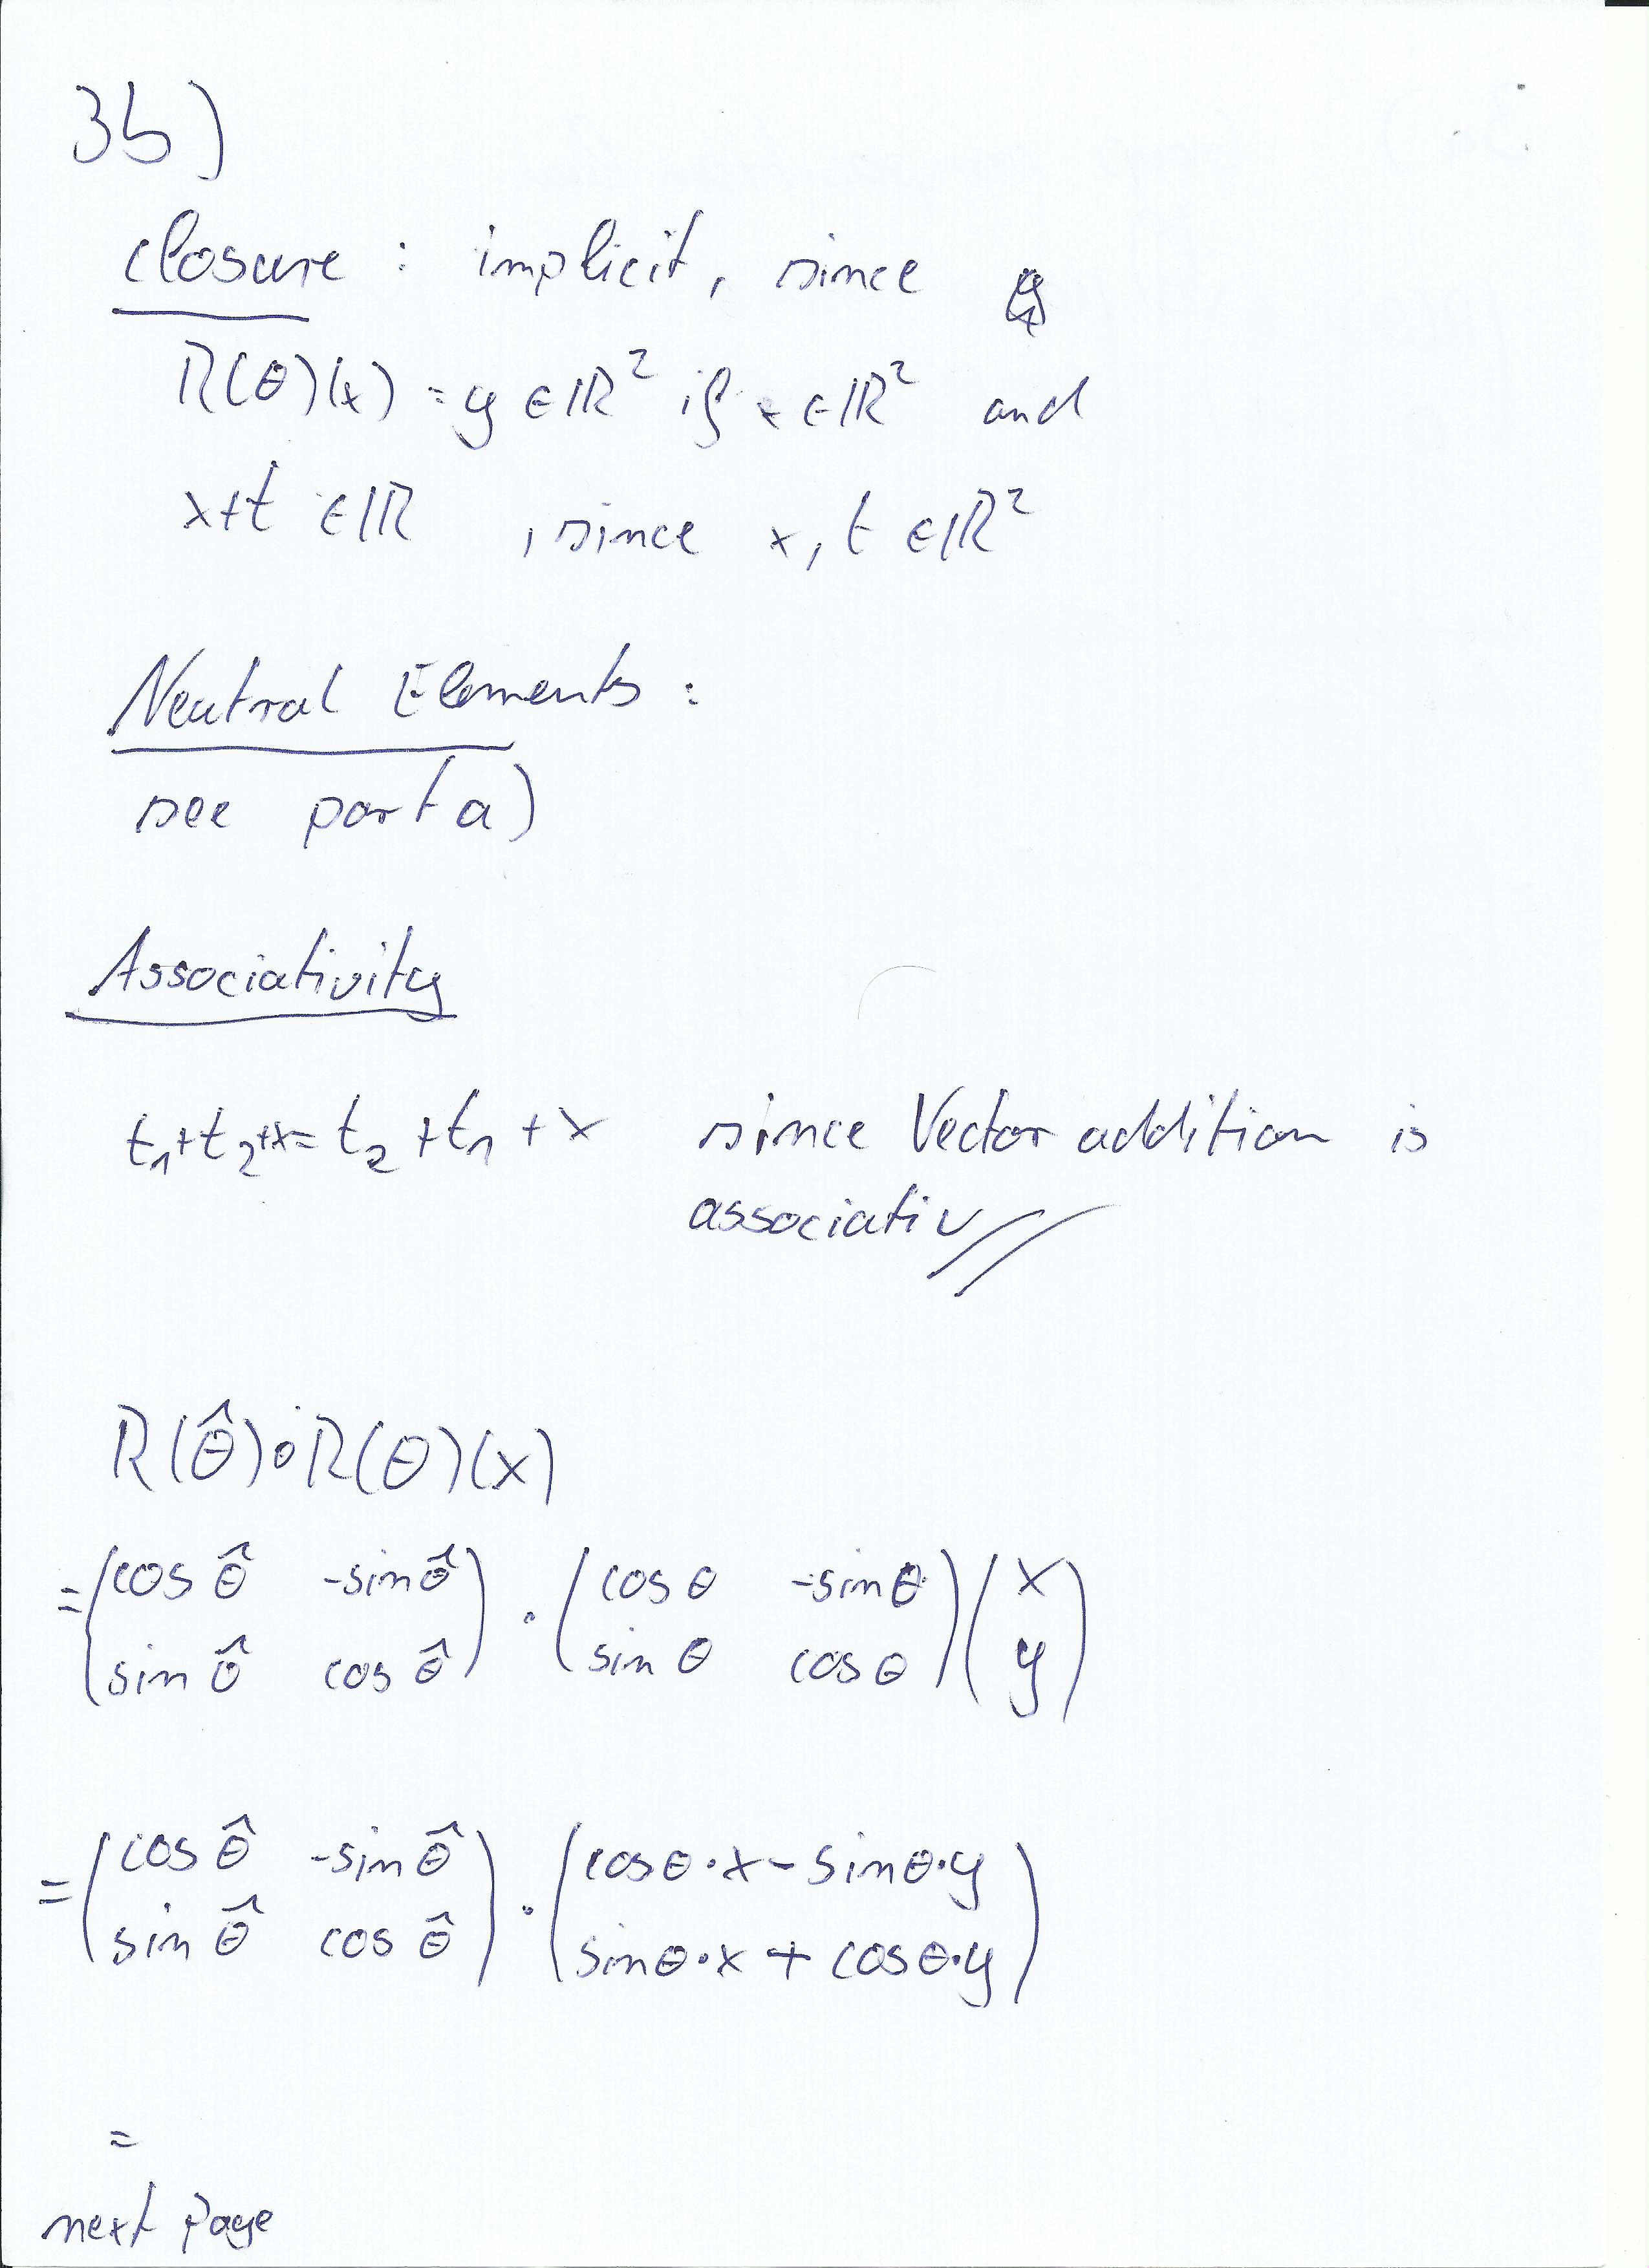 3b)
closure : implicit, since
R(θ)(x) = y ∈ ℝ² if x ∈ ℝ² and
x+t ∈ ℝ , since x, t ∈ ℝ²
Neutral Elements :
see part a)
Associativity
t₁+t₂+x = t₂ + t₁ + x since Vector addition is
associativ //
R(θ̂)∘R(θ)(x)
= (cos θ̂ -sin θ̂) · (cos θ -sin θ) (x)
(sin θ̂ cos θ̂) (sin θ cos θ) (y)
= (cos θ̂ -sin θ̂) · (cosθ·x - sinθ·y)
(sin θ̂ cos θ̂) (sinθ·x + cosθ·y)
=
next Page